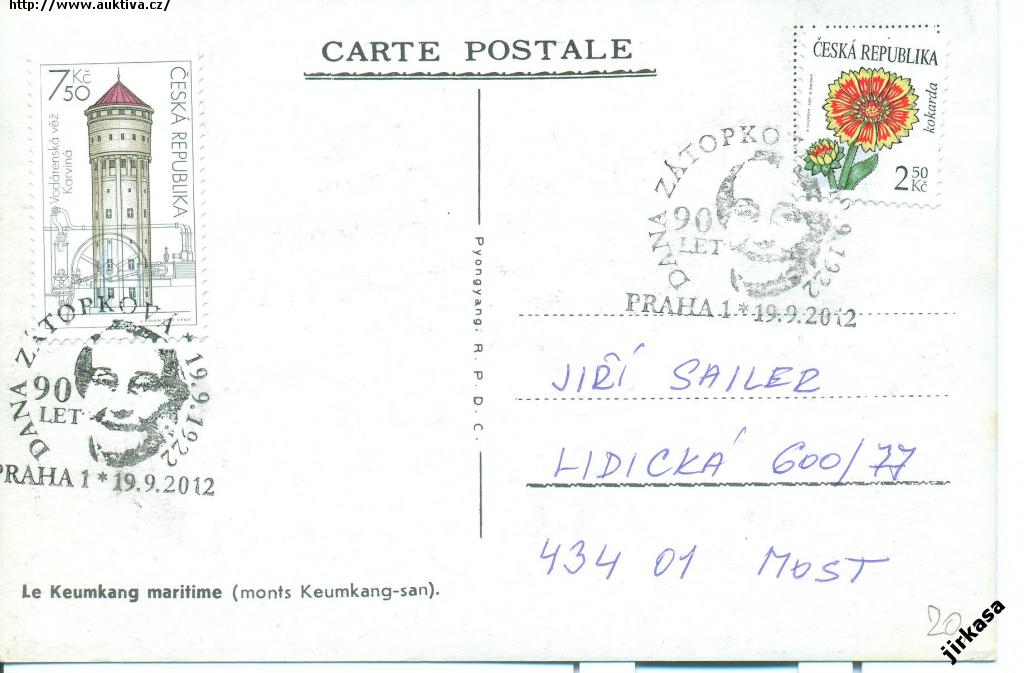 http://www.auktiva.cz/
CARTE POSTALE
7 50 Kč
ČESKÁ REPUBLIKA
Vodárenská věž
Karviná
ČESKÁ REPUBLIKA
kokarda
2 50 Kč
DANA ZÁTOPKOVÁ * 19.9.1922
90
LET
PRAHA 1 * 19.9.2012
DANA ZÁTOPKOVÁ * 19.9.1922
90
LET
PRAHA 1 * 19.9.2012
Pyongyang. R. P. D. C.
JIŘÍ SAILER
LIDICKÁ 600/77
434 01 MOST
Le Keumkang maritime (monts Keumkang-san).
20
jirkasa